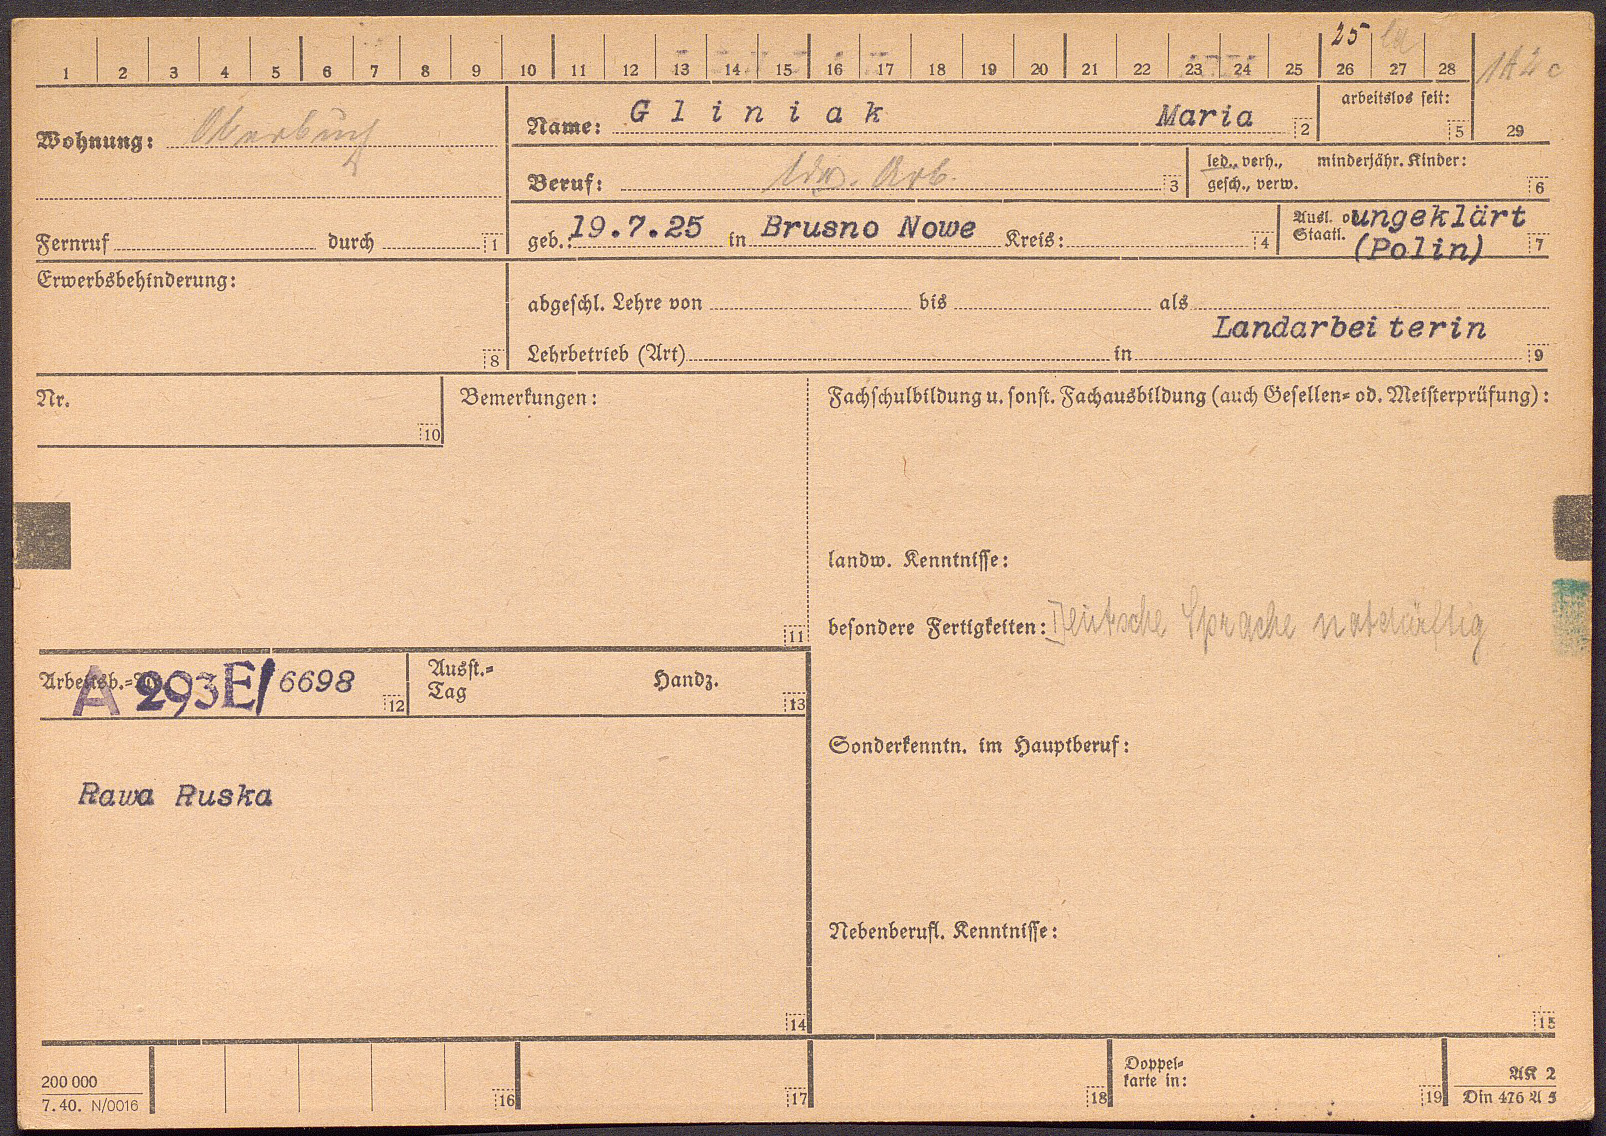 25
1 2 3 4 5 6 7 8 9 10 11 12 13 14 15 16 17 18 19 20 21 22 23 24 25 26 27 28
29
Wohnung:
Fernruf durch 1
Name: Gliniak Maria 2
arbeitslos seit: 5
Beruf: ldw. Arb. 3
led., verh., minderjähr. Kinder:
gesch., verw. 6
geb.: 19.7.25 in Brusno Nowe Kreis: 4
Ausl. o ungeklärt
Staatl. (Polin) 7
Erwerbsbehinderung: 8
abgeschl. Lehre von bis als
Landarbeiterin
Lehrbetrieb (Art) in 9
Nr. 10
Bemerkungen: 11
Fachschulbildung u. sonst. Fachausbildung (auch Gesellen- od. Meisterprüfung):
landw. Kenntnisse:
besondere Fertigkeiten: Deutsche Sprache notdürftig
Arbeitsb.-Nr. A 293E/6698 12
Ausst.- Handz.
Tag 13
Rawa Ruska
14
Sonderkenntn. im Hauptberuf:
Nebenberufl. Kenntnisse:
15
200 000
7.40. N/0016
16 17 18
Doppel-
karte in: 19
AK 2
Din 476 A 5